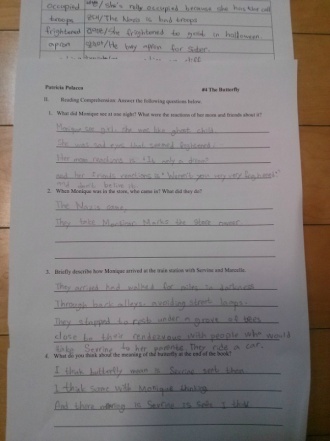 occupied / She's really occupied because she has
troops / The Nazis is had troops
frightened / She frightened to gosts in halloween.
apron / He buy apron for Sidor.
Patricia Polacco #4 The Butterfly
II. Reading Comprehension: Answer the following questions below.
1. What did Monique see at one night? What were the reactions of her mom and friends about it?
Monique see girl. she was like ghost child
She was sad eyes and seemed frightened.
Her mom reactions is "It only a dream"
and her friends reactions is "Weren't you very very frightened?"
2. When Monique was in the store, who came in? What did they do?
The Nazis came.
They take Monsieur Marks the store owner.
3. Briefly describe how Monique arrived at the train station with Sevrine and Marcella.
They arrived and walked for miles in darkness
Through back alleys, avoiding street lamps.
They stopped to rest under a grove of trees
close to their rendezvous with people who would
take Sevrine to her parents. They ride a car.
4. What do you think about the meaning of the butterfly at the end of the book?
I think butterfly mean is Sevrine sent them.
I think same with Monique
And there is Sevrine is safe I think